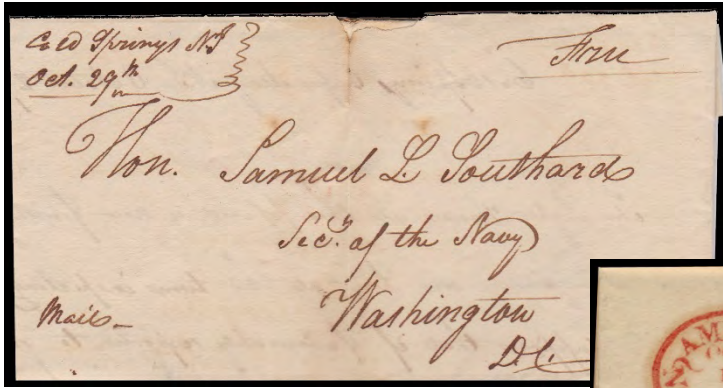 Cold Springs NJ
Oct. 29th
Free
Hon. Samuel L. Southard
Secy. of the Navy
Washington
D.C.
Mail